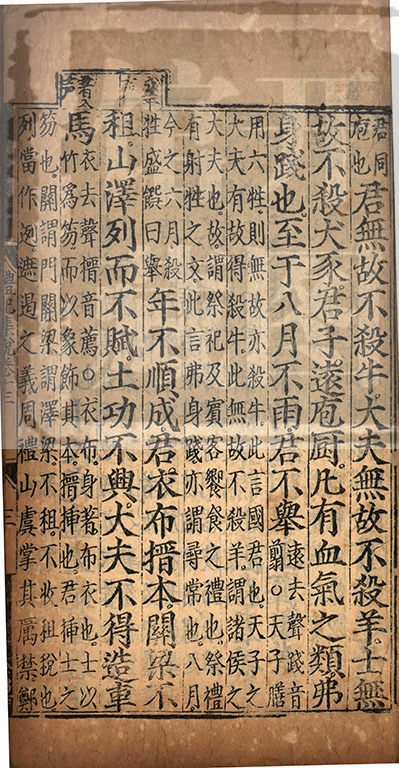 君同
庖也
君無故不殺牛大夫無故不殺羊士無
故不殺犬豕君子遠庖厨凡有血氣之類弗
身踐也至于八月不雨君不舉
遠去聲踐音
翦○天子膳
用六牲則無故亦殺牛此言國君也天子之
大夫有故得殺牛此無故不殺羊謂諸侯之
大夫也故謂祭祀及賓客饗食之禮也祭禮
有射牲之文此言弗身踐亦謂尋常也八月
今之六月殺
牲盛饌曰舉
年不順成君衣布搢本關梁不
租山澤列而不賦土功不興大夫不得造車
馬
衣去聲搢音薦○衣布身著布衣也士以
竹爲笏而以象飾其本搢揷也君揷士之
笏也關謂門關梁謂澤梁不租不收租稅也
列當作迾遮遏之義周禮山虞掌其厲禁鄭